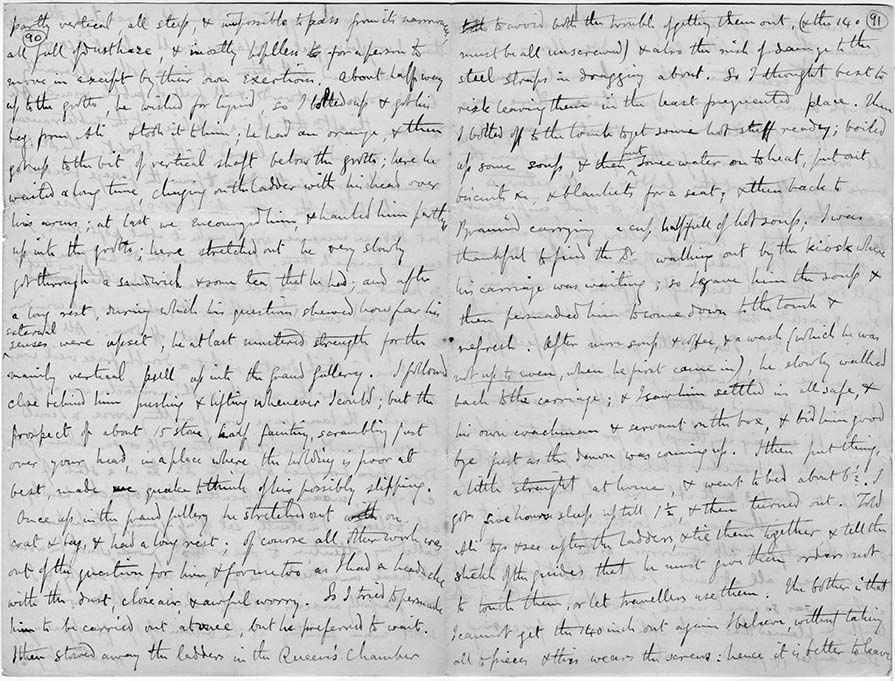 90
partly vertical, all steep, & impossible to pass from its narrowness
all full of dust haze, & mostly hopeless to for a person to
move in except by their own exertions. About half way
up to the grotto, he wished for liquid so I bolted up & got his
bag from Ali & took it to him; he had an orange, & then
got up to the bit of vertical shaft below the grotto; here he
waited a long time, clinging on the ladder with his head over
his arms; at last we encouraged him, & hauled him partly
up into the grotto; here stretched out he very slowly
got through a sandwich & some tea that he had; and after
a long rest, during which his questions shewed how far his
several
senses were upset, he at last mustered strength for the
mainly vertical pull up into the grand gallery. I followed
close behind him pushing & lifting whenever I could; but the
prospect of about 15 stone, half fainting, scrambling just
over your head, in a place where the holding is poor at
best, made me quake to think of his possibly slipping.
Once up in the grand gallery he stretched out on
coat & bag, & had a long rest. Of course all other work was
out of the question for him & for me too, as I had a headache
with the dust, close air, & awful worry. So I tried to persuade
him to be carried out at once, but he preferred to wait.
I then stowed away the ladders in the Queen's Chamber
91
to avoid both the trouble of getting them out, (& the 140
must be all unscrewed) & also the risk of damage to the
steel straps in dragging about. So I thought best to
risk leaving them in the least frequented place. Then
I bolted off to the tomb to get some hot stuff ready; boiled
up some soup, & then put some water on to heat, put out
biscuits &c, & blankets for a seat; & then back to
Pyramid carrying a cup half full of hot soup; I was
thankful to find the Dr walking out by the kiosk where
his carriage was waiting; so I gave him the soup &
then persuaded him to come down to the tomb &
refresh. After more soup & coffee, & a wash (which he was
not up to even, when he first came in), he slowly walked
back to the carriage; & I saw him settled in all safe, &
his own coachman & servant on the box, & bid him good
bye just as the dawn was coming up. I then put things
a little straight at home, & went to bed about 6½. I
got five hours sleep up till 1½, & then turned out. Told
Ali to go & see after the ladders, & tie them together & tell the
sheikh of the guides that he must give them orders not
to touch them, or let travellers use them. The bother is that
I cannot get the 140 inch out again I believe, without taking
all to pieces & this wears the screws: hence it is better to leave